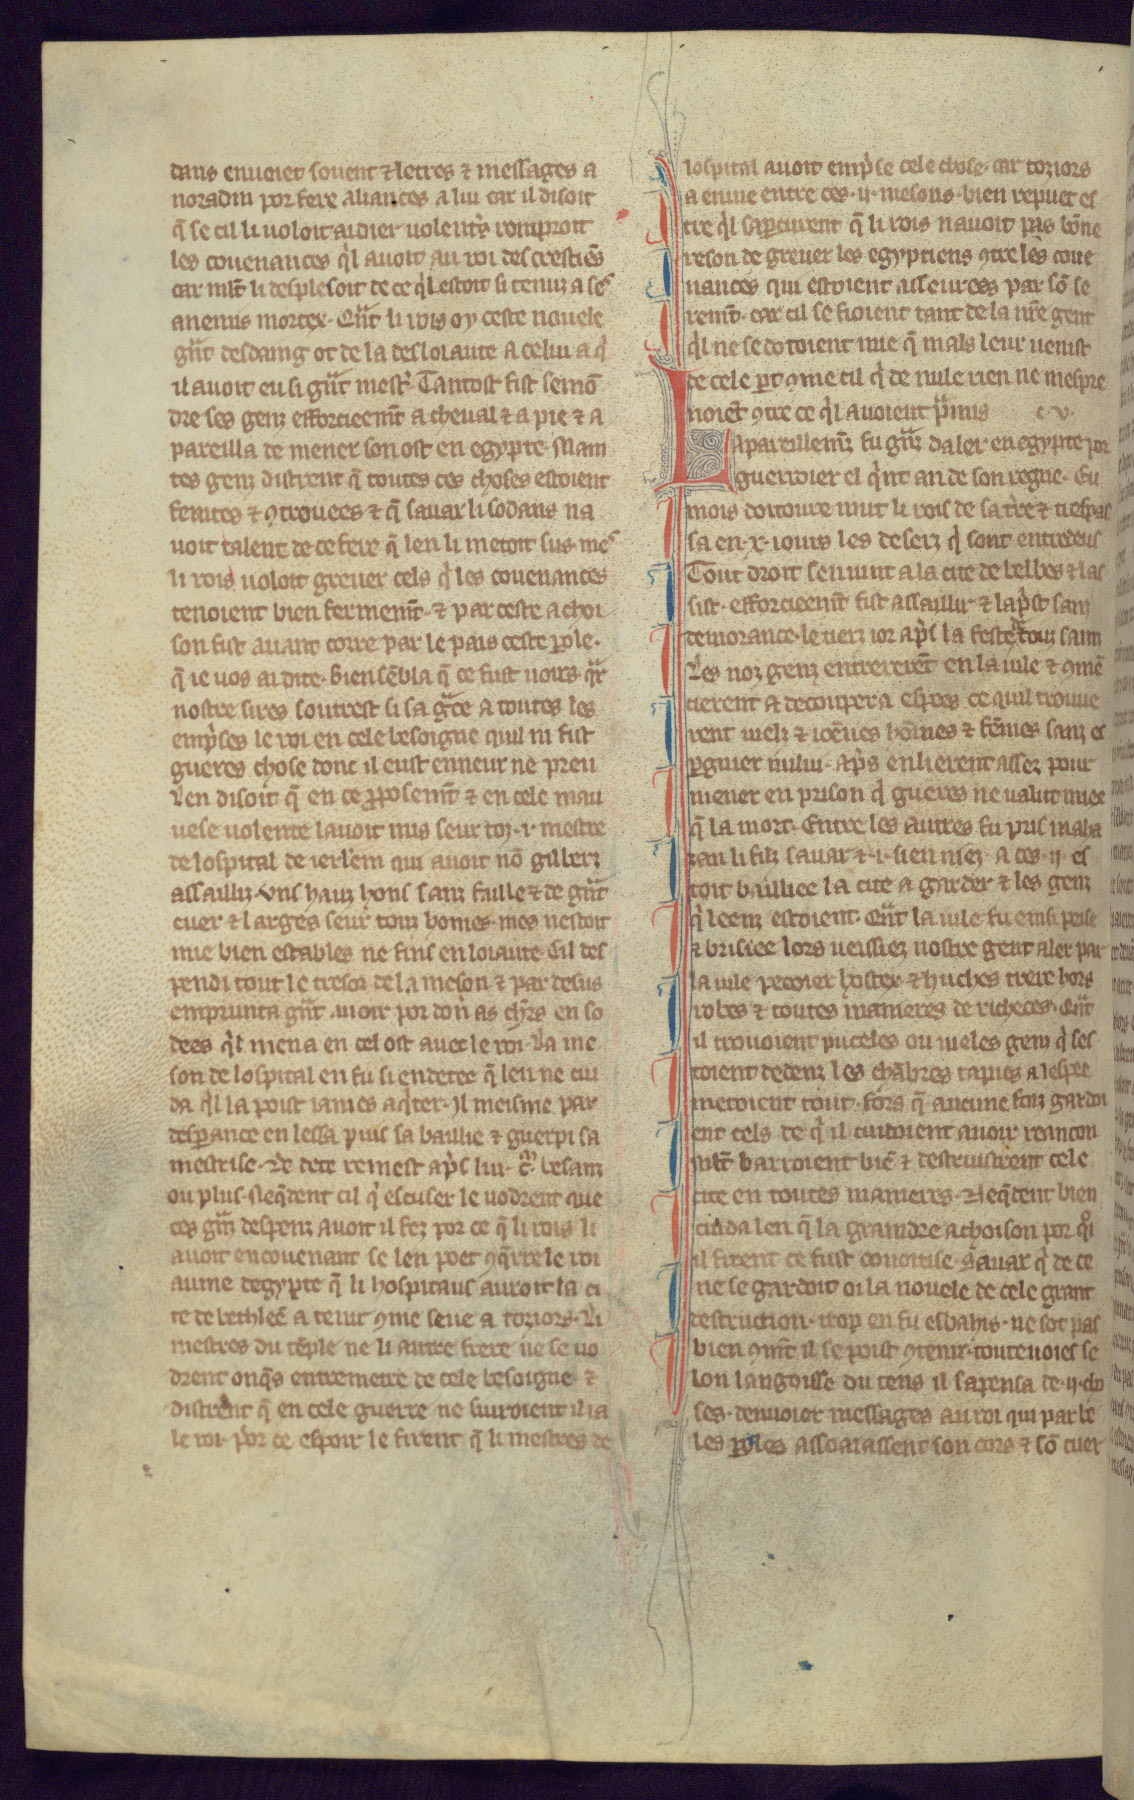 dans enuoiet souent ⁊ letres ⁊ messages a
noradin por fere aliances a lui car il disoit
q̃ se cil li uoloit aidier uolentr̃s romproit
les couenances q̓l auoit au roi des crestiẽs
car ml̃t li desplesoit de ce q̓l estoit si tenuz a ses
anemis mortex. Q̃nt li rois oy ceste nouele
gñt desdaing ot de la desloiaute a celui a q̓
il auoit eu si gñt mest̓. Tantost fist semõ
dre ses genz efforcieem̃t a cheual ⁊ a pie ⁊ a
pareilla de mener son ost en egypte. Main
tes genz distrent q̃ toutes ces choses estoient
feintes ⁊ ꝯtrouees ⁊ q̃ sauar li sodans na
uoit talent de ce fere q̃ len li metoit sus. mes
li rois uoloit greuer cels q̓ les couenances
tenoient bien fermem̃t. ⁊ par ceste achoi
son fist auant corre par le pais ceste ꝑole.
q̃ ie uos ai dite. Bien sẽbla q̃ ce fust uoirs. q̃r
nostre sires soutrest si sa gr̃ce a toutes les
emp̓ses le roi en cele besoigne quil ni fist
gueres chose dont il eust enneur ne preu
Len disoit q̃ en ce ꝓposem̃t ⁊ en cele mau
uese uolente lauoit mis seur toz .i. mestre
de lospital de ierlem̃ qui auoit nõ gilberz
assailliz. Vns hauz hons sanz faille ⁊ de gñt
cuer ⁊ larges seur touz homes. mes nestoit
mie bien estables ne fins en loiaute. Cil des
pendi tout le tresor de la meson ⁊ par desus
emprunta gñt auoir por doñ as ch̓rs en so
dees q̓l mena en cel ost auec le roi. La me
son de lospital en fu si endetee q̃ len ne cui
da q̓l la poist iames aq̓ter. Il meisme par
desꝑance en lessa puis sa baillie ⁊ guerpi sa
mestrise. Le dete remest ap̓s lui .c.m̃ besanz
ou plus. Neq̃dent cil q̓ escuser le uodrent que
ces gñz despenz auoit il fez por ce q̃ li rois li
auoit encouenant se len poet ꝯq̃rre le roi
aume degypte q̃ li hospitaus auroit la ci
te de bethleẽ a tenir ꝯme seue a toziors. Li
mestres du tẽple ne li autre frere ne se uo
drent onq̃s entremetre de cele besoigne ⁊
distrent q̃ en cele guerre ne suiroient il ia
le roi. por ce espoir le firent q̃ li mestres de
lospital auoit emp̓se cele chose. car toziors
a enuie entre ces .ii. mesons. bien repuet es
tre q̓l saꝑcurent q̃ li rois nauoit pas bõne
reson de greuer les egyptiens ꝯtre les coue
nances qui estoient asseurees par sõ se
rem̃t. car cil se fioient tant de la nr̃e gent
q̓l ne se dotoient mie q̃ mals leur uenist
de cele ꝑt ꝯme cil q̓ de nule rien ne mespre
noiẽt ꝯtre ce q̓l auoient ꝓmis c. v.
Lapareillemẽz fu gñz daler en egypte por
guerroier el q̓nt an de son regne. Eu
mois doitoure mut li rois de sa t̓re ⁊ trespas
sa en .x. iours les deserz q̓ sont entredeus
Tout droit sen uint a la cite de belbes ⁊ las
sist. efforcieem̃t fist assaillir ⁊ la p̓st sanz
demorance. le tierz ior ap̓s la feste de touz sainz
Les noz genz entrerẽt en la uile ⁊ ꝯmẽ
cierent a decouper a espees ce quil trouue
rent uielz ⁊ ioẽnes hõmes ⁊ fẽmes sanz es
ꝑgnier nului. Ap̓s en lierent assez pour
mener en prison q̓ gueres ne ualut miex
q̃ la mort. Entre les autres fu pris maha
zan li filz sauar ⁊ .i. sien niez. a ces .ii. es
toit bailliee la cite a garder ⁊ les genz
q̓ leenz estoient. Q̃nt la uile fu einsi perse
⁊ brisiee lors ueissiez nostre gent aler par
la uile peçoier hostex. ⁊ huches trere hors
robes ⁊ toutes manieres de richeces. Q̃nt
il trouoient puceles ou uieles genz q̓ ses
toient dedenz les chãbres tapies a lespee
metoient tout. fors q̃ aucune foiz gardoi
ent cels de q̓ il cuidoient auoir reancon
Ml̃t barroient biẽ ⁊ destruistrent cele
cite en toutes manieres. Neq̃dent bien
cuida len q̃ la graindre achoison por q̓i
il firent ce fust couoitise. Sauar q̓ de ce
ne se gardoit oi la nouele de cele grant
destruction. trop en fu esbahis. ne sot pas
bien ꝯm̃t il se poist ꝯtenir. toutes uoies se
lon langoisse du tens il sapensa de .ii. cho
ses. denuoier messages au roi qui par be
les ꝑoles assoaiassent son cors ⁊ sõ cuer